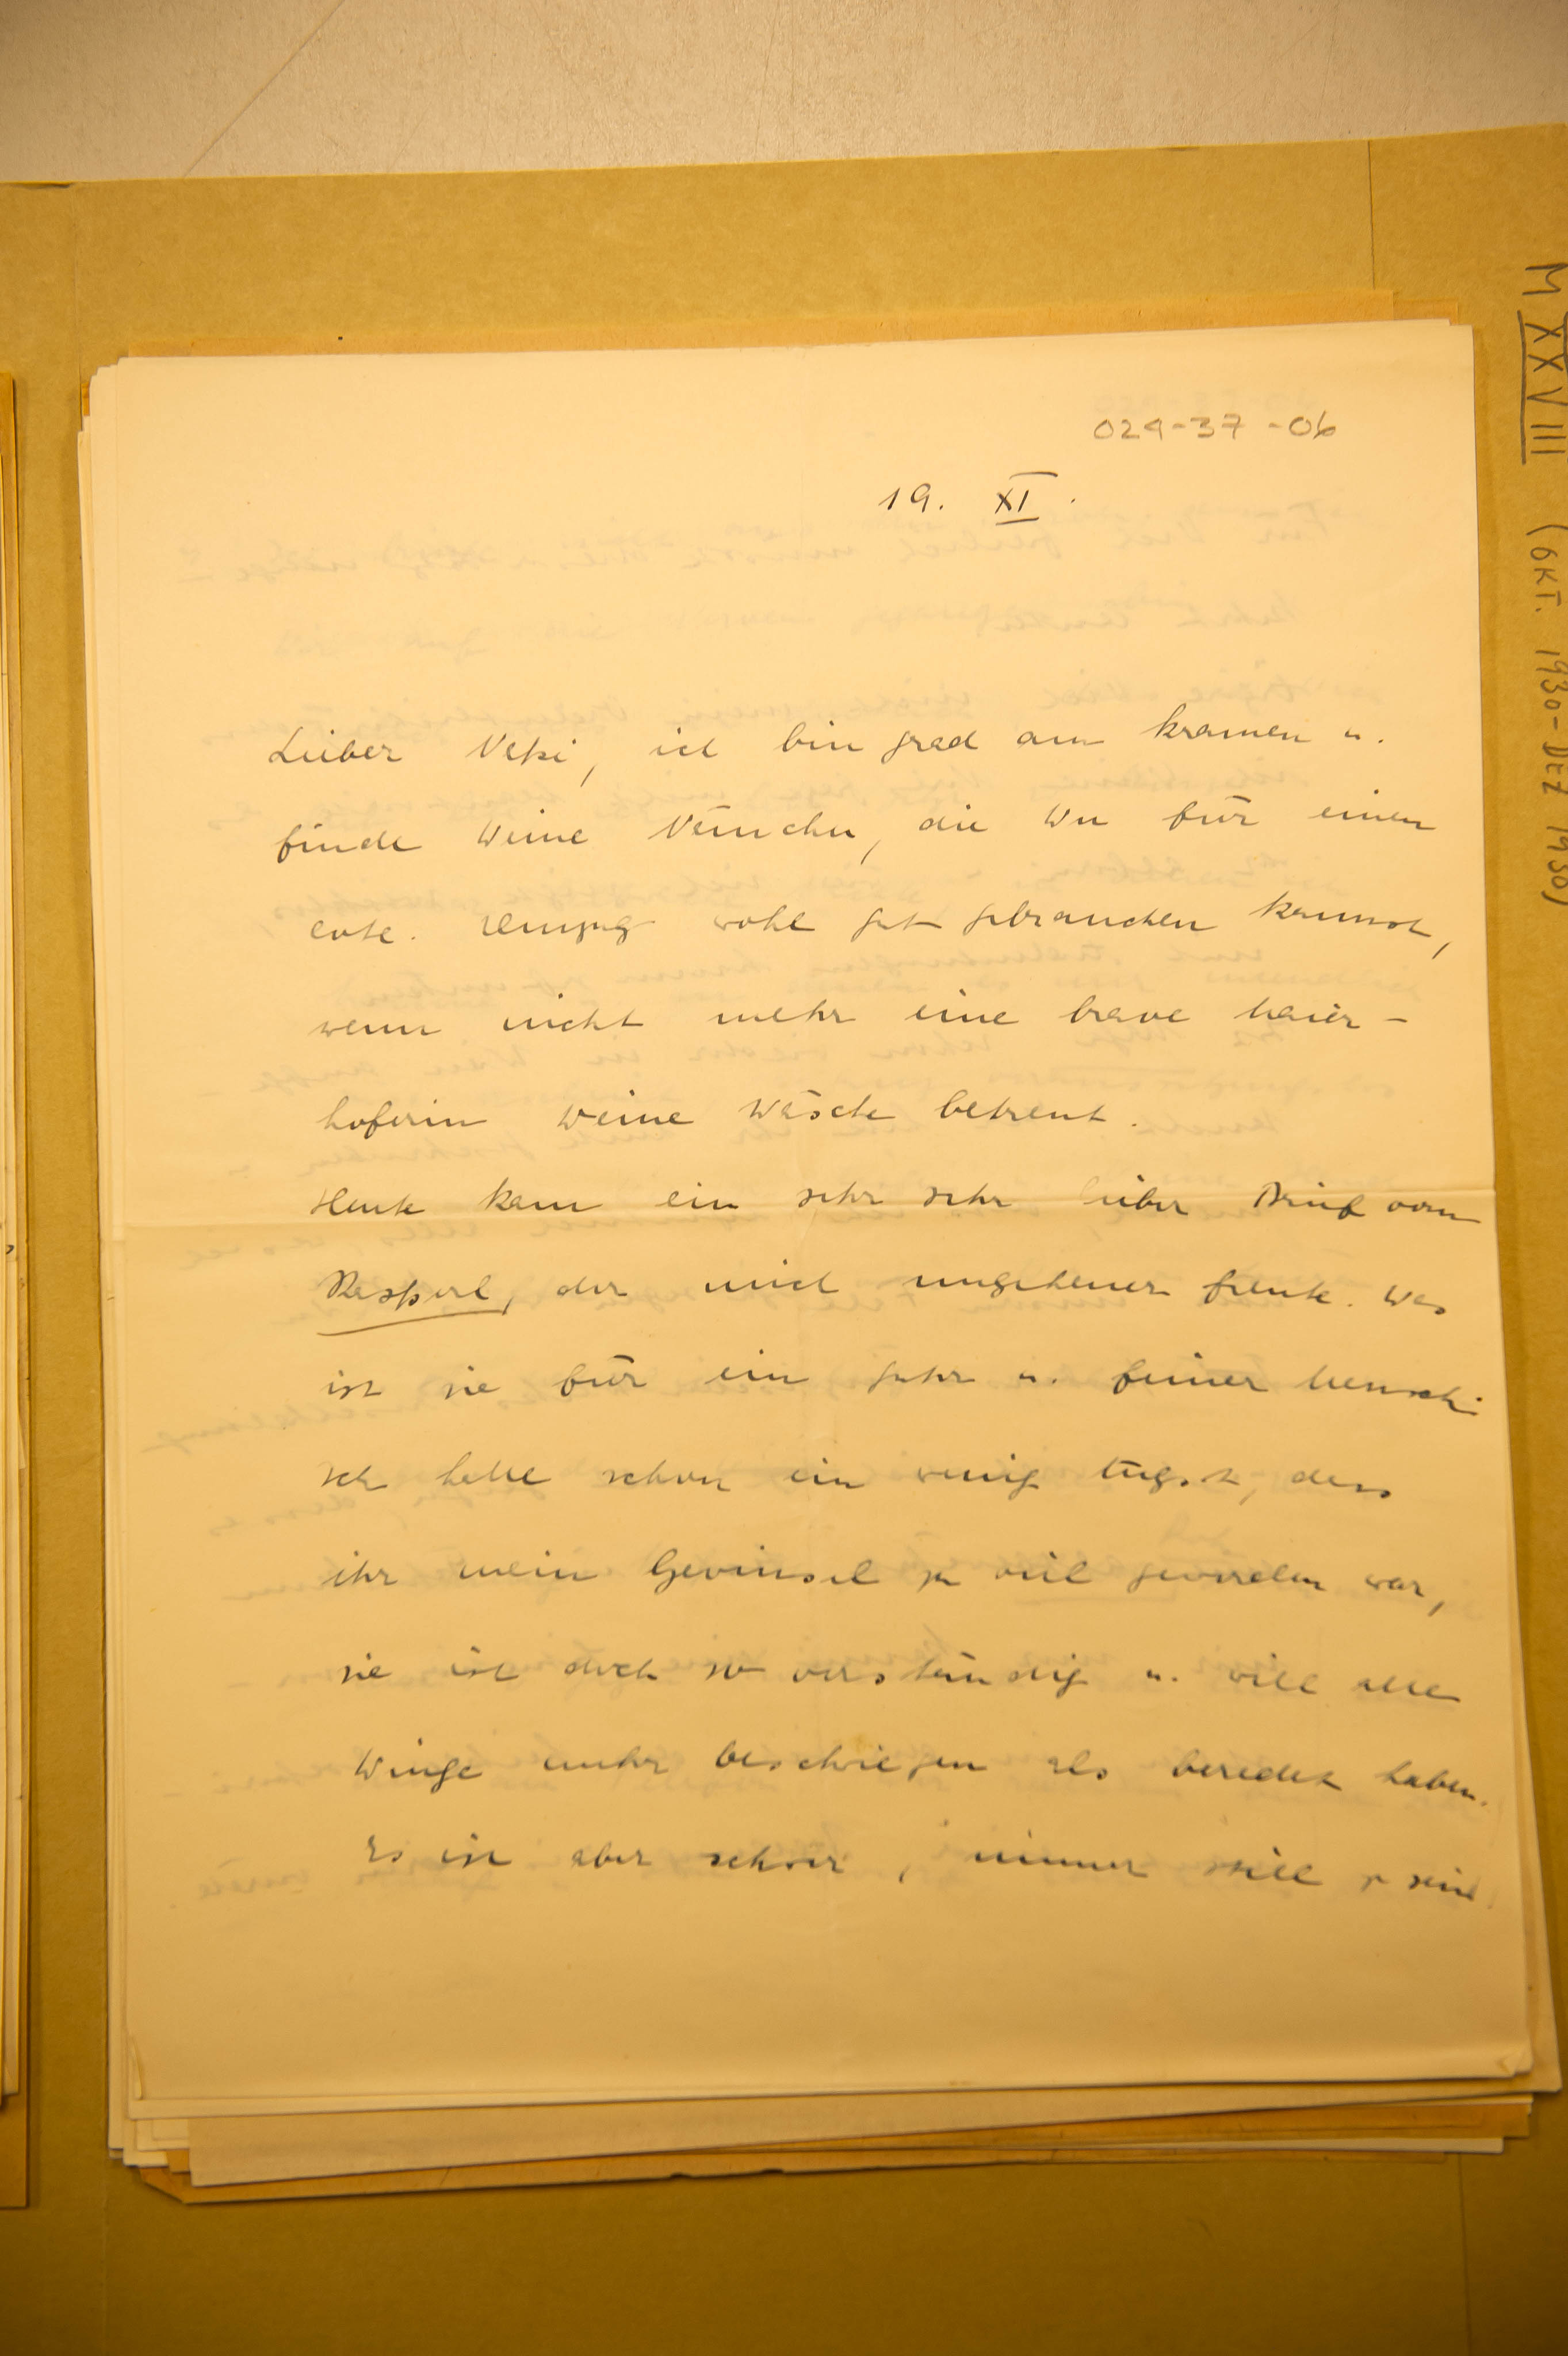 029-37-06
19. XI.
Lieber Neki, ich bin grad am kramen u.
finde Deine Nämchen, die Du für einen
evt. Umzug wohl gut gebrauchen kannst,
wenn nicht mehr eine brave Maier-
hoferin Deine Wäsche betreut.
Heute kam ein sehr sehr lieber Brief vom
Resserl, der mich ungeheuer freute. Was
ist sie für ein guter u. feiner Mensch.
Ich hatte schon ein wenig Angst, dass
ihr mein Gewinsel zu viel geworden war,
sie ist doch so verständig u. will alle
Dinge mehr beschwiegen als beredet haben.
Es ist aber schwer, immer still zu sein
M XXVIII (OKT. 1930-DEZ 1930)